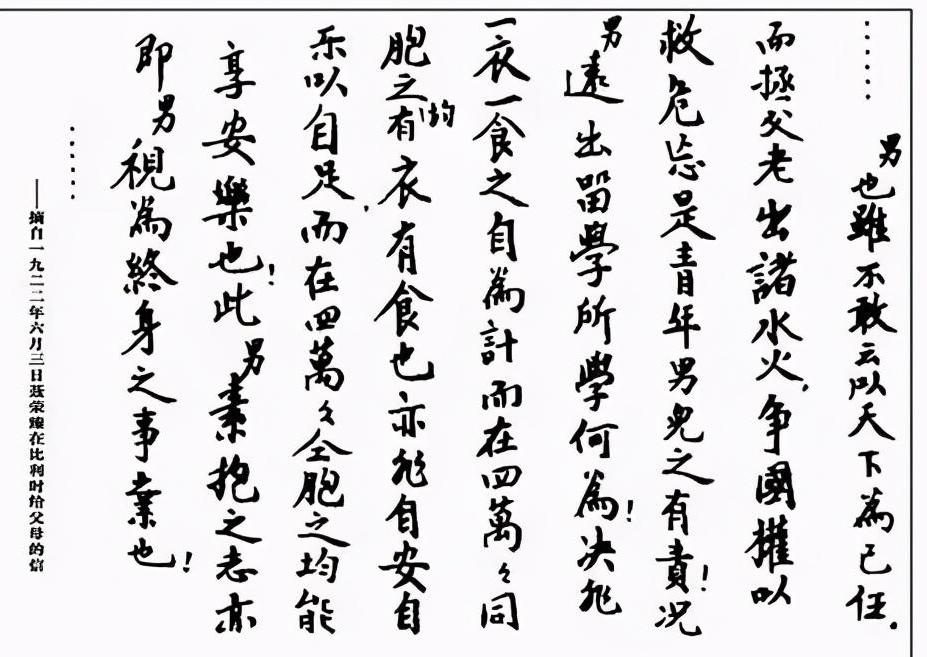 ……
男也雖不敢云以天下為己任.
而拯父老出諸水火,争國權以
救危忘是青年男兒之有責!况
男遠出留學所學何為!决非
一衣一食之自為計而在四萬々同
胞之均有衣有食也亦非自安自
乐以自足,而在四萬々仝胞之均能
享安樂也!此男素抱之志亦
即男視為終身之事業也!
……
——摘自一九二二年六月三日聂荣臻在比利时给父母的信